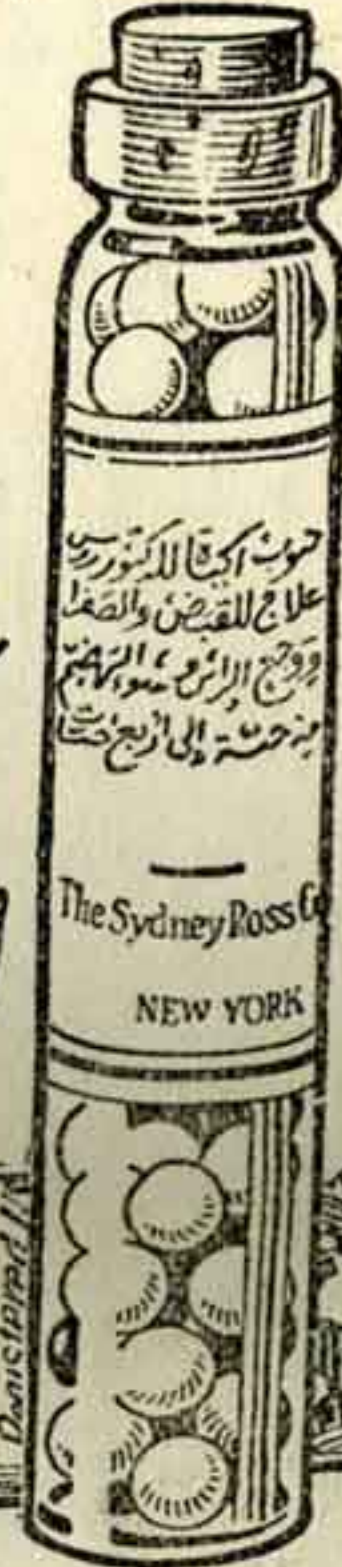 حبوب الحياة للدكتور روس
علاج للقبض والصفرا
ووجع الراس وسوء الهضم
من حبة إلى أربع حبات
The Sydney Ross Co
NEW YORK